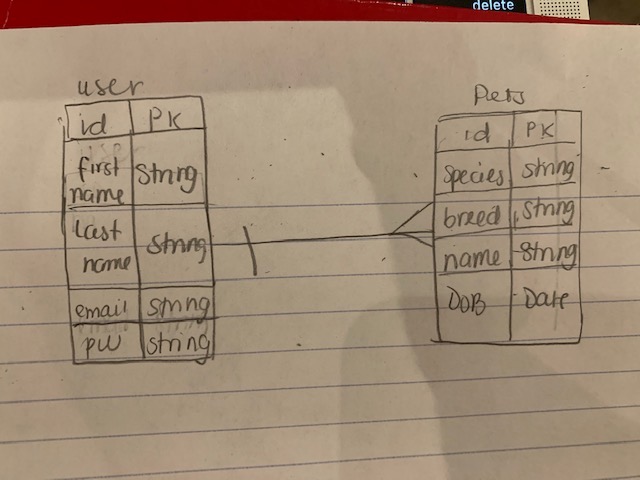 delete
user
id PK
first name String
last name String
email string
pw string
Pets
id PK
species string
breed string
name String
DOB Date